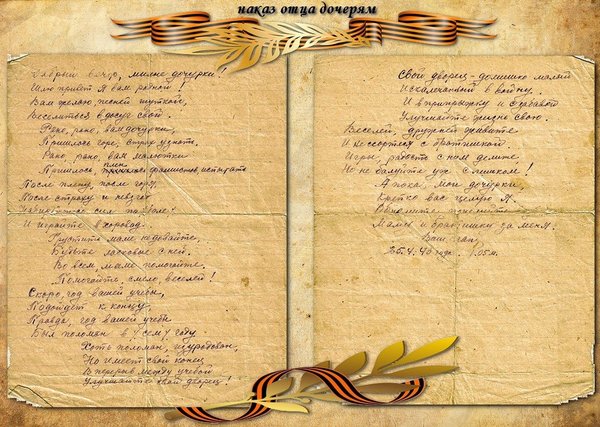 наказ отца дочерям
Добрый вечер, милые дочурки!
Шлю привет Я вам родной!
Вам желаю, песней шуткой,
Веселиться в досуг свой.
Рано, рано, вам дочурки,
Пришлось горе, страх узнать.
Рано, рано, вам малютки
Пришлось, плен фашистов, испытать
После плену, после горя,
После страху и невзгод
сил
И играйте в хоровод.
Грустить маме не давайте,
Будьте ласковые с ней.
Во всем, маме помогайте.
Помогайте, смело, веселей!
Скоро, год вашей учебы,
Подойдет к концу,
Правда, год вашей учебы
Был поломан в 7 году
Хоть поломан, изуродован,
Но имеет свой конец
В перерыв между учебой
Улучшайте свой дворец!
Свой дворец - домишко малый
Искалеченный в войну.
И в припрыжку и с забавой
Улучшайте жизнь свою.
Веселей, дружней живите
И не ссорьтесь с братишкой
Игры, радость с ним делите
Но не балуйте уж слишком!
А пока, мои дочурки
Крепко вас целую Я.
Обнимите, поцелуйте
Маму и братишку за меня.
Ваш папа
25.4.45 года